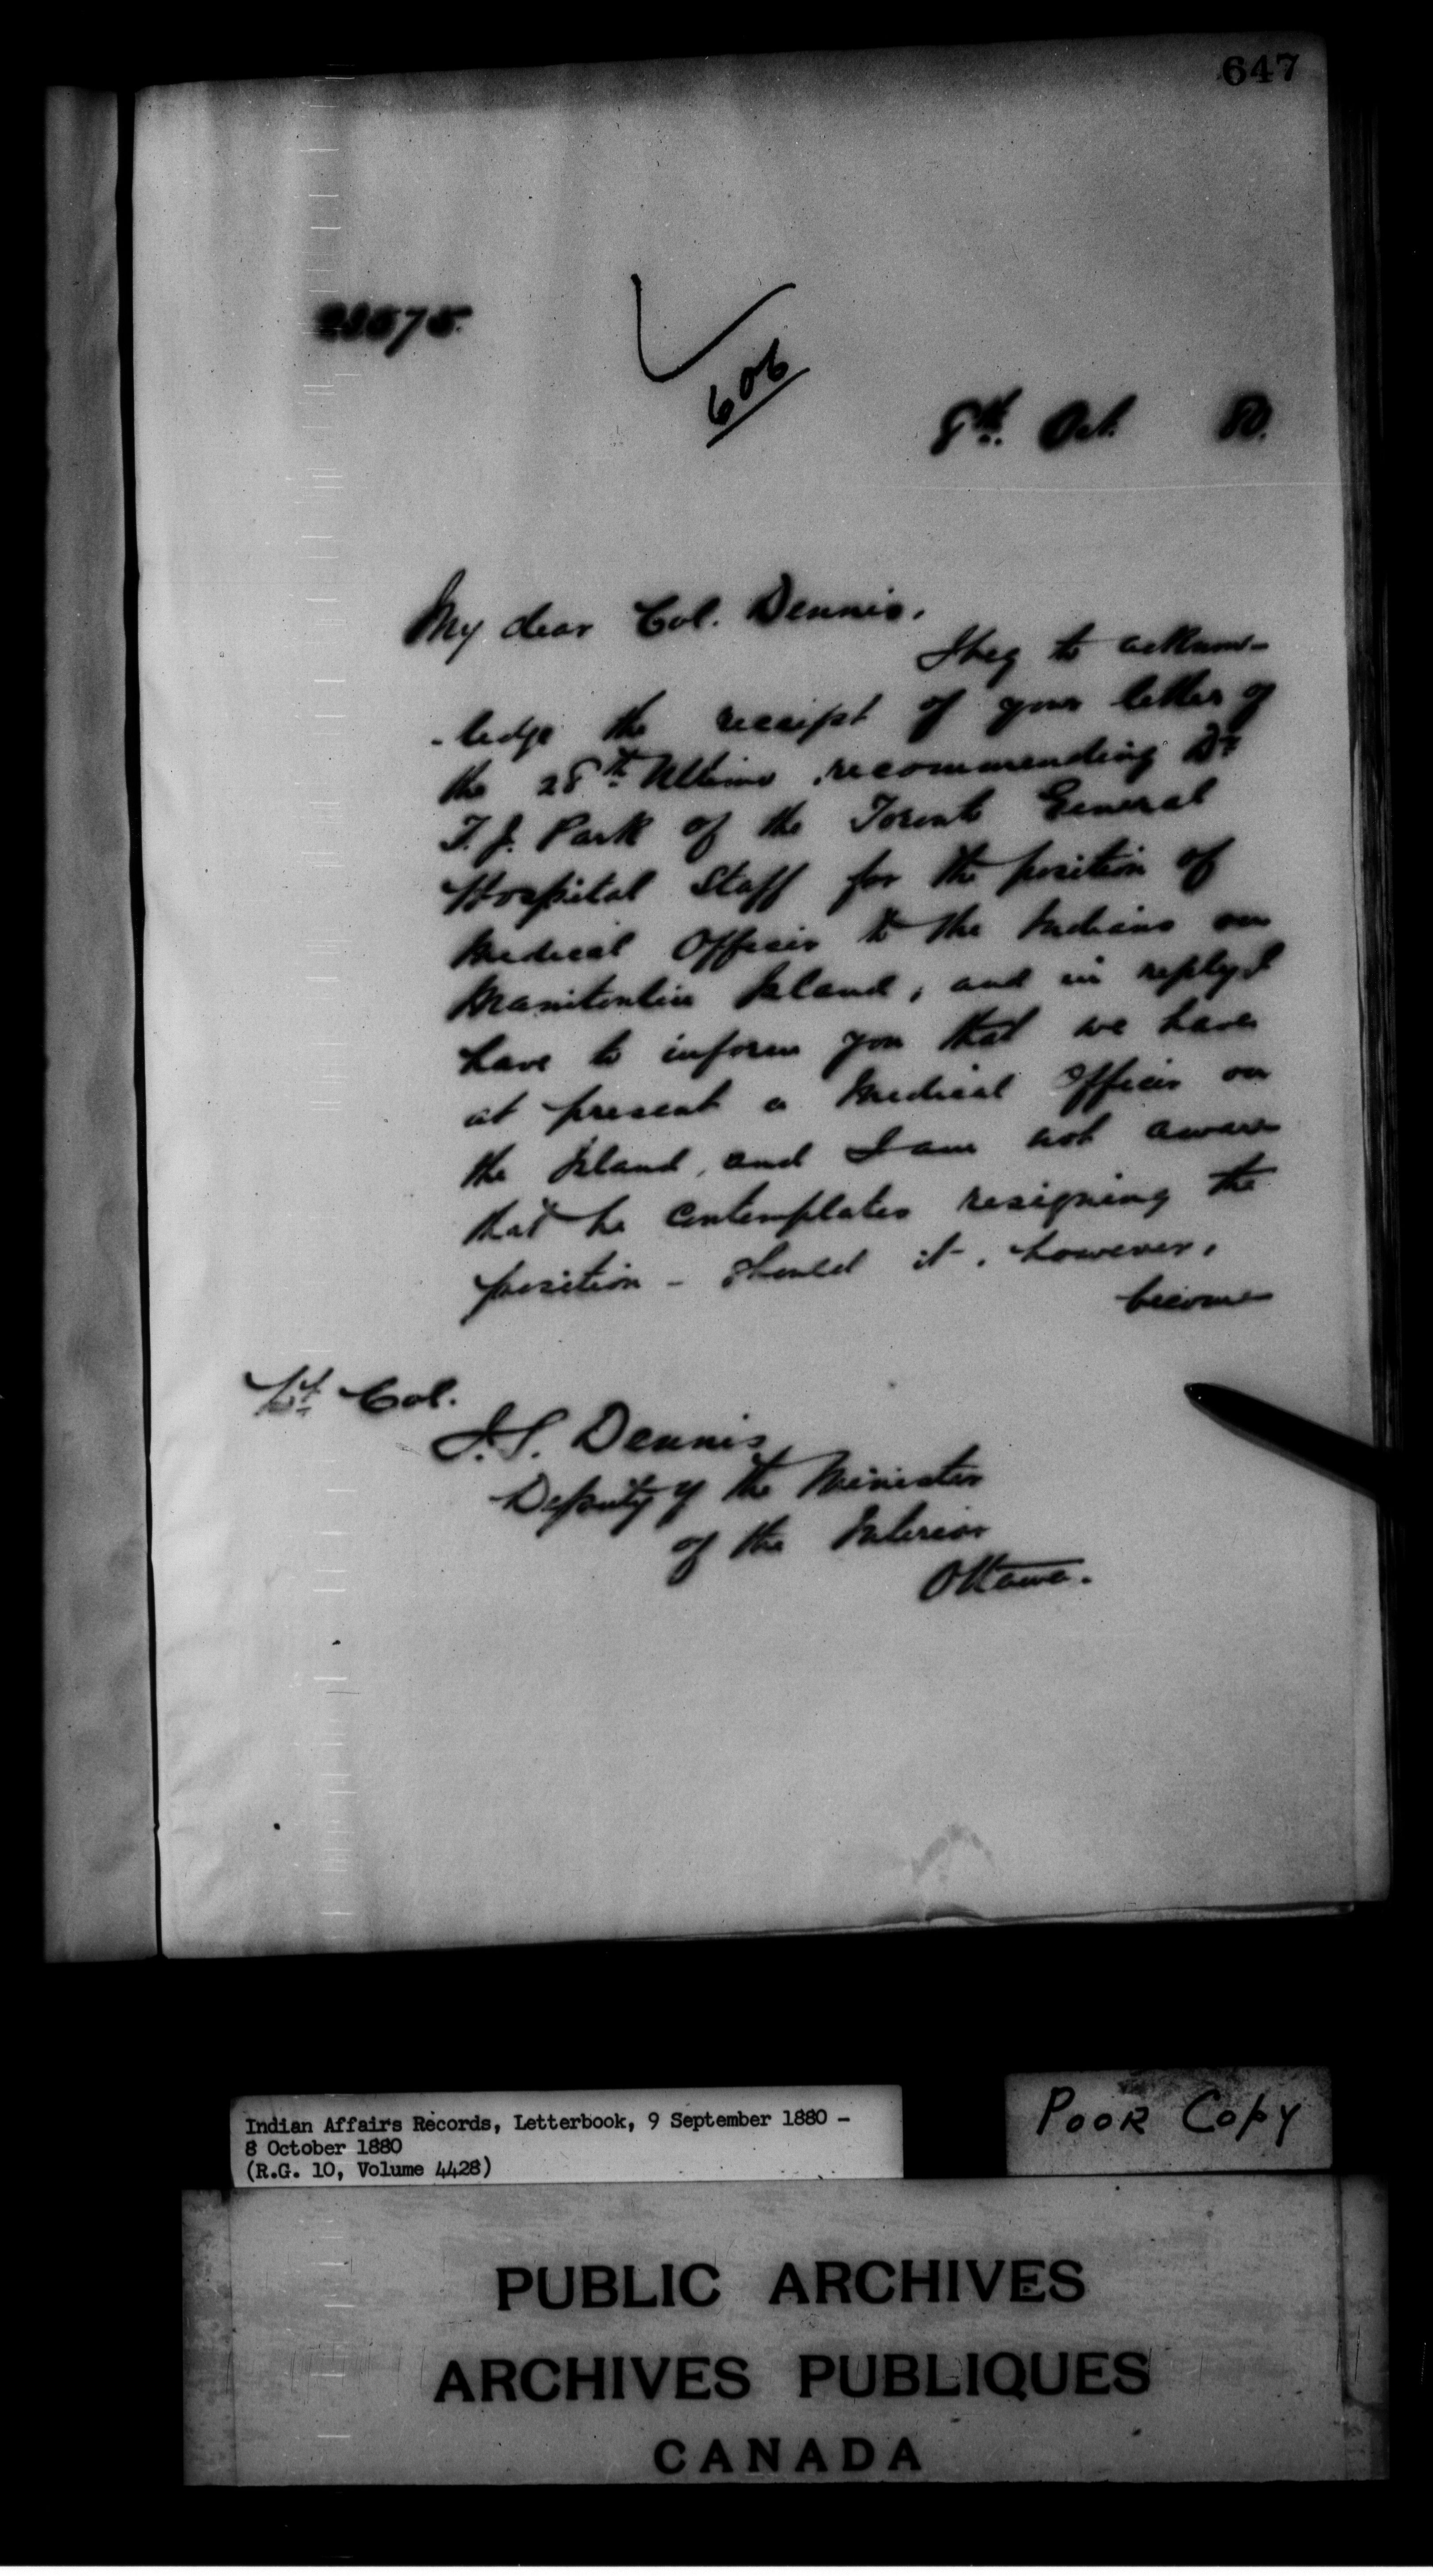 647
606
8th. Oct. 80.
My dear Col. Dennis,
I beg to acknow-
-ledge the receipt of your letter of
the 28th Ultimo, recommending Dr
T. J. Park of the Toronto General
Hospital Staff for the position of
Medical Officer to the Indians on
Manitoulin Island, and in reply I
have to inform you that we have
at present a Medical Officer on
the Island, and I am not aware
that he contemplates resigning the
position - Should it, however,
become
Lt. Col.
J.S. Dennis
Deputy of the Minister
of the Interior
Ottawa.
Indian Affairs Records, Letterbook, 9 September 1880 -
8 October 1880
(R.G. 10, Volume 4428)
POOR COPY
PUBLIC ARCHIVES
ARCHIVES PUBLIQUES
CANADA